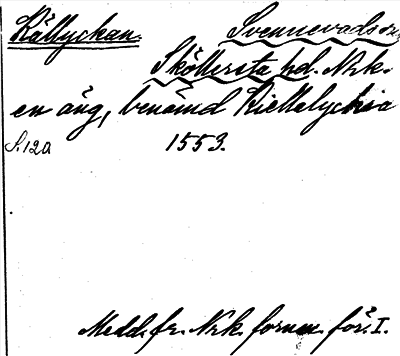 Källyckan. Svennevads sn.
Sköllersta hd. Nrk.
en äng, benämd Kiellelyckia
S. 120 1553.
Medd. fr. Nrk. fornm. för. I.